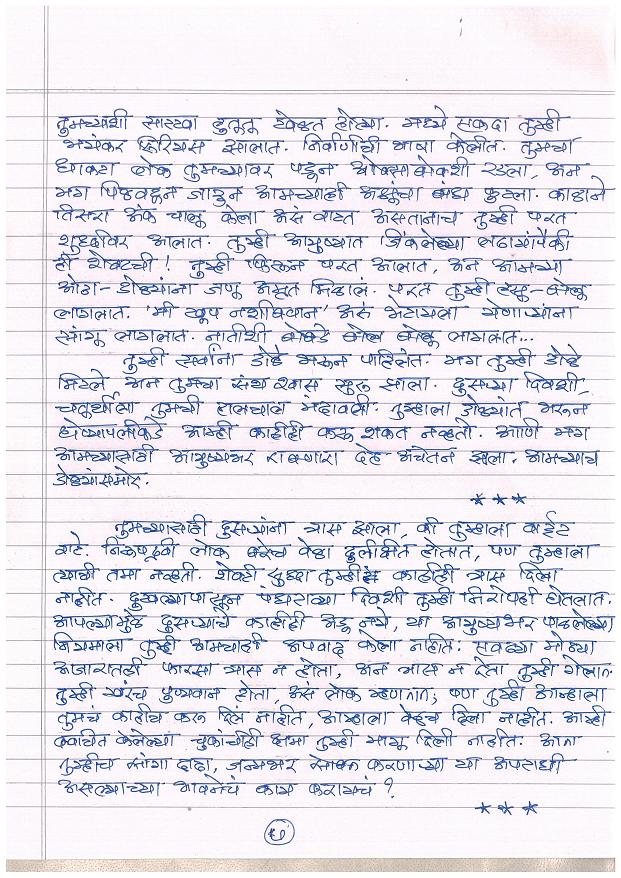 तुमच्याशी सारखा हुतूतू खेळत होत्या. मध्ये एकदा तुम्ही
भयंकर सिरियस झालात. निर्वाणीची भाषा केलीत. तुमचा
धाकटा लेक तुमच्यावर पडून ओक्साबोक्शी रडला, अन
मग पिळवटून जाऊन आमच्याही अश्रूंचा बांध फुटला. काळाने
तिसरा अंक चालू केला असं वाटत असतानाच तुम्ही परत
शुद्धीवर आलात. तुम्ही आयुष्यात जिंकलेल्या लढायांपैकी
ही शेवटची! तुम्ही फिरून परत आलात, अन आमच्या
ओठा-डोळ्यांना जणू अमृत मिळालं. परत तुम्ही हसू-बोलू
लागलात. 'मी खूप नशीबवान' असं भेटायला येणाऱ्यांना
सांगू लागलात. नातीशी बोबडे बोल बोलू लागलात...
तुम्ही सर्वांना डोळे भरून पाहिलंत. मग तुम्ही डोळे
मिटले अन तुमचा संथ श्वास सुरू झाला. दुसऱ्या दिवशी,
चतुर्थीला तुमची हालचाल मंदावली. तुम्हाला डोळ्यांत भरून
घेण्यापलीकडे आम्ही काहीही करू शकत नव्हतो. आणि मग
आमच्यासाठी आयुष्यभर राबणारा देह अचेतन झाला. आमच्याच
डोळ्यांसमोर.
***
तुमच्यासाठी दुसऱ्यांना त्रास झाला, की तुम्हाला वाईट
वाटे. लोक बरेच वेळा दुर्लक्षित होतात, पण तुम्हाला
त्याची तमा नव्हती. शेवटी सुद्धा तुम्ही काहीही त्रास दिला
नाहीत. दुखल्यापासून पंधराव्या दिवशी तुम्ही निरोपही घेतलात.
आपल्यामुळे दुसऱ्याचे काहीही अडू नये, या आयुष्यभर पाळलेल्या
नियमाला तुम्ही आमचाही अपवाद केला नाहीत. एवढ्या मोठ्या
आजारातही फारसा त्रास न होता, अन त्रास न देता तुम्ही गेलात.
तुम्ही खरंच पुण्यवान होता, असं लोक म्हणतात; पण तुम्ही आम्हाला
तुमचं काहीच करू दिलं नाहीत, आम्हाला वेळच दिला नाहीत. आम्ही
क्वचित केलेल्या चुकांचीही क्षमा तुम्ही मागू दिली नाहीत. आता
तुम्हीच सांगा दादा, जन्मभर सोबत करणाऱ्या या अपराधी
असल्याच्या भावनेचं काय करायचं?
***